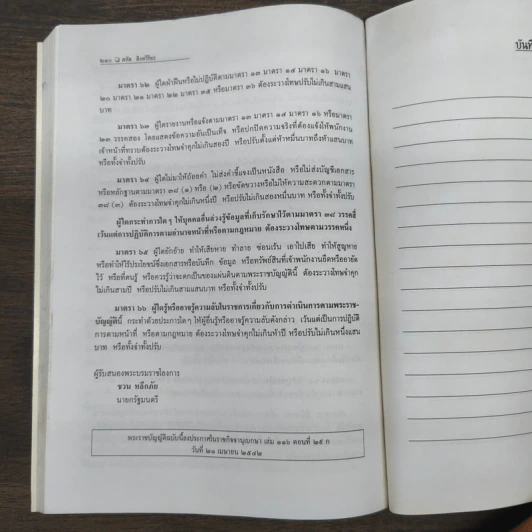 ๒๑๐ ❏ สหัส สิงหวิริยะ
มาตรา ๖๒ ผู้ใดฝ่าฝืนหรือไม่ปฏิบัติตามมาตรา ๑๓ มาตรา ๑๔ มาตรา ๑๖ มาตรา
๒๐ มาตรา ๒๑ มาตรา ๒๒ มาตรา ๓๕ หรือมาตรา ๓๖ ต้องระวางโทษปรับไม่เกินห้าแสน
บาท
มาตรา ๖๓ ผู้ใดรายงานหรือแจ้งตามมาตรา ๑๓ มาตรา ๑๔ มาตรา ๑๖ หรือมาตรา
๒๓ วรรคสอง โดยแสดงข้อความอันเป็นเท็จ หรือปกปิดความจริงที่ต้องแจ้งให้พนักงาน
เจ้าหน้าที่ทราบต้องระวางโทษจำคุกไม่เกินสองปี หรือปรับตั้งแต่ห้าหมื่นบาทถึงห้าแสนบาท
หรือทั้งจำทั้งปรับ
มาตรา ๖๔ ผู้ใดไม่มาให้ถ้อยคำ ไม่ส่งคำชี้แจงเป็นหนังสือ หรือไม่ส่งบัญชีเอกสาร
หรือหลักฐานตามมาตรา ๓๘ (๑) หรือ (๒) หรือขัดขวางหรือไม่ให้ความสะดวกตามมาตรา
๓๘ (๓) ต้องระวางโทษจำคุกไม่เกินหนึ่งปี หรือปรับไม่เกินสองหมื่นบาท หรือทั้งจำทั้งปรับ
ผู้ใดกระทำการใดๆ ให้บุคคลอื่นล่วงรู้ข้อมูลที่เก็บรักษาไว้ตามมาตรา ๓๘ วรรคสี่
เว้นแต่การปฏิบัติการตามอำนาจหน้าที่หรือตามกฎหมาย ต้องระวางโทษตามวรรคหนึ่ง
มาตรา ๖๕ ผู้ใดยักย้าย ทำให้เสียหาย ทำลาย ซ่อนเร้น เอาไปเสีย ทำให้สูญหาย
หรือทำให้ไร้ประโยชน์ซึ่งเอกสารหรือบันทึก ข้อมูล หรือทรัพย์สินที่เจ้าพนักงานยึดหรืออายัด
ไว้ หรือที่ตนรู้ หรือควรรู้ว่าจะตกเป็นของแผ่นดินตามพระราชบัญญัตินี้ ต้องระวางโทษจำคุก
ไม่เกินสามปี หรือปรับไม่เกินสามแสนบาท หรือทั้งจำทั้งปรับ
มาตรา ๖๖ ผู้ใดรู้หรืออาจรู้ความลับในราชการเกี่ยวกับการดำเนินการตามพระราช-
บัญญัตินี้ กระทำด้วยประการใดๆ ให้ผู้อื่นรู้หรืออาจรู้ความลับดังกล่าว เว้นแต่เป็นการปฏิบัติ
การตามหน้าที่ หรือตามกฎหมาย ต้องระวางโทษจำคุกไม่เกินห้าปี หรือปรับไม่เกินหนึ่งแสน
บาท หรือทั้งจำทั้งปรับ
ผู้รับสนองพระบรมราชโองการ
ชวน หลีกภัย
นายกรัฐมนตรี
พระราชบัญญัติฉบับนี้ลงประกาศในราชกิจจานุเบกษา เล่ม ๑๑๖ ตอนที่ ๒๙ ก
วันที่ ๒๑ เมษายน ๒๕๔๒